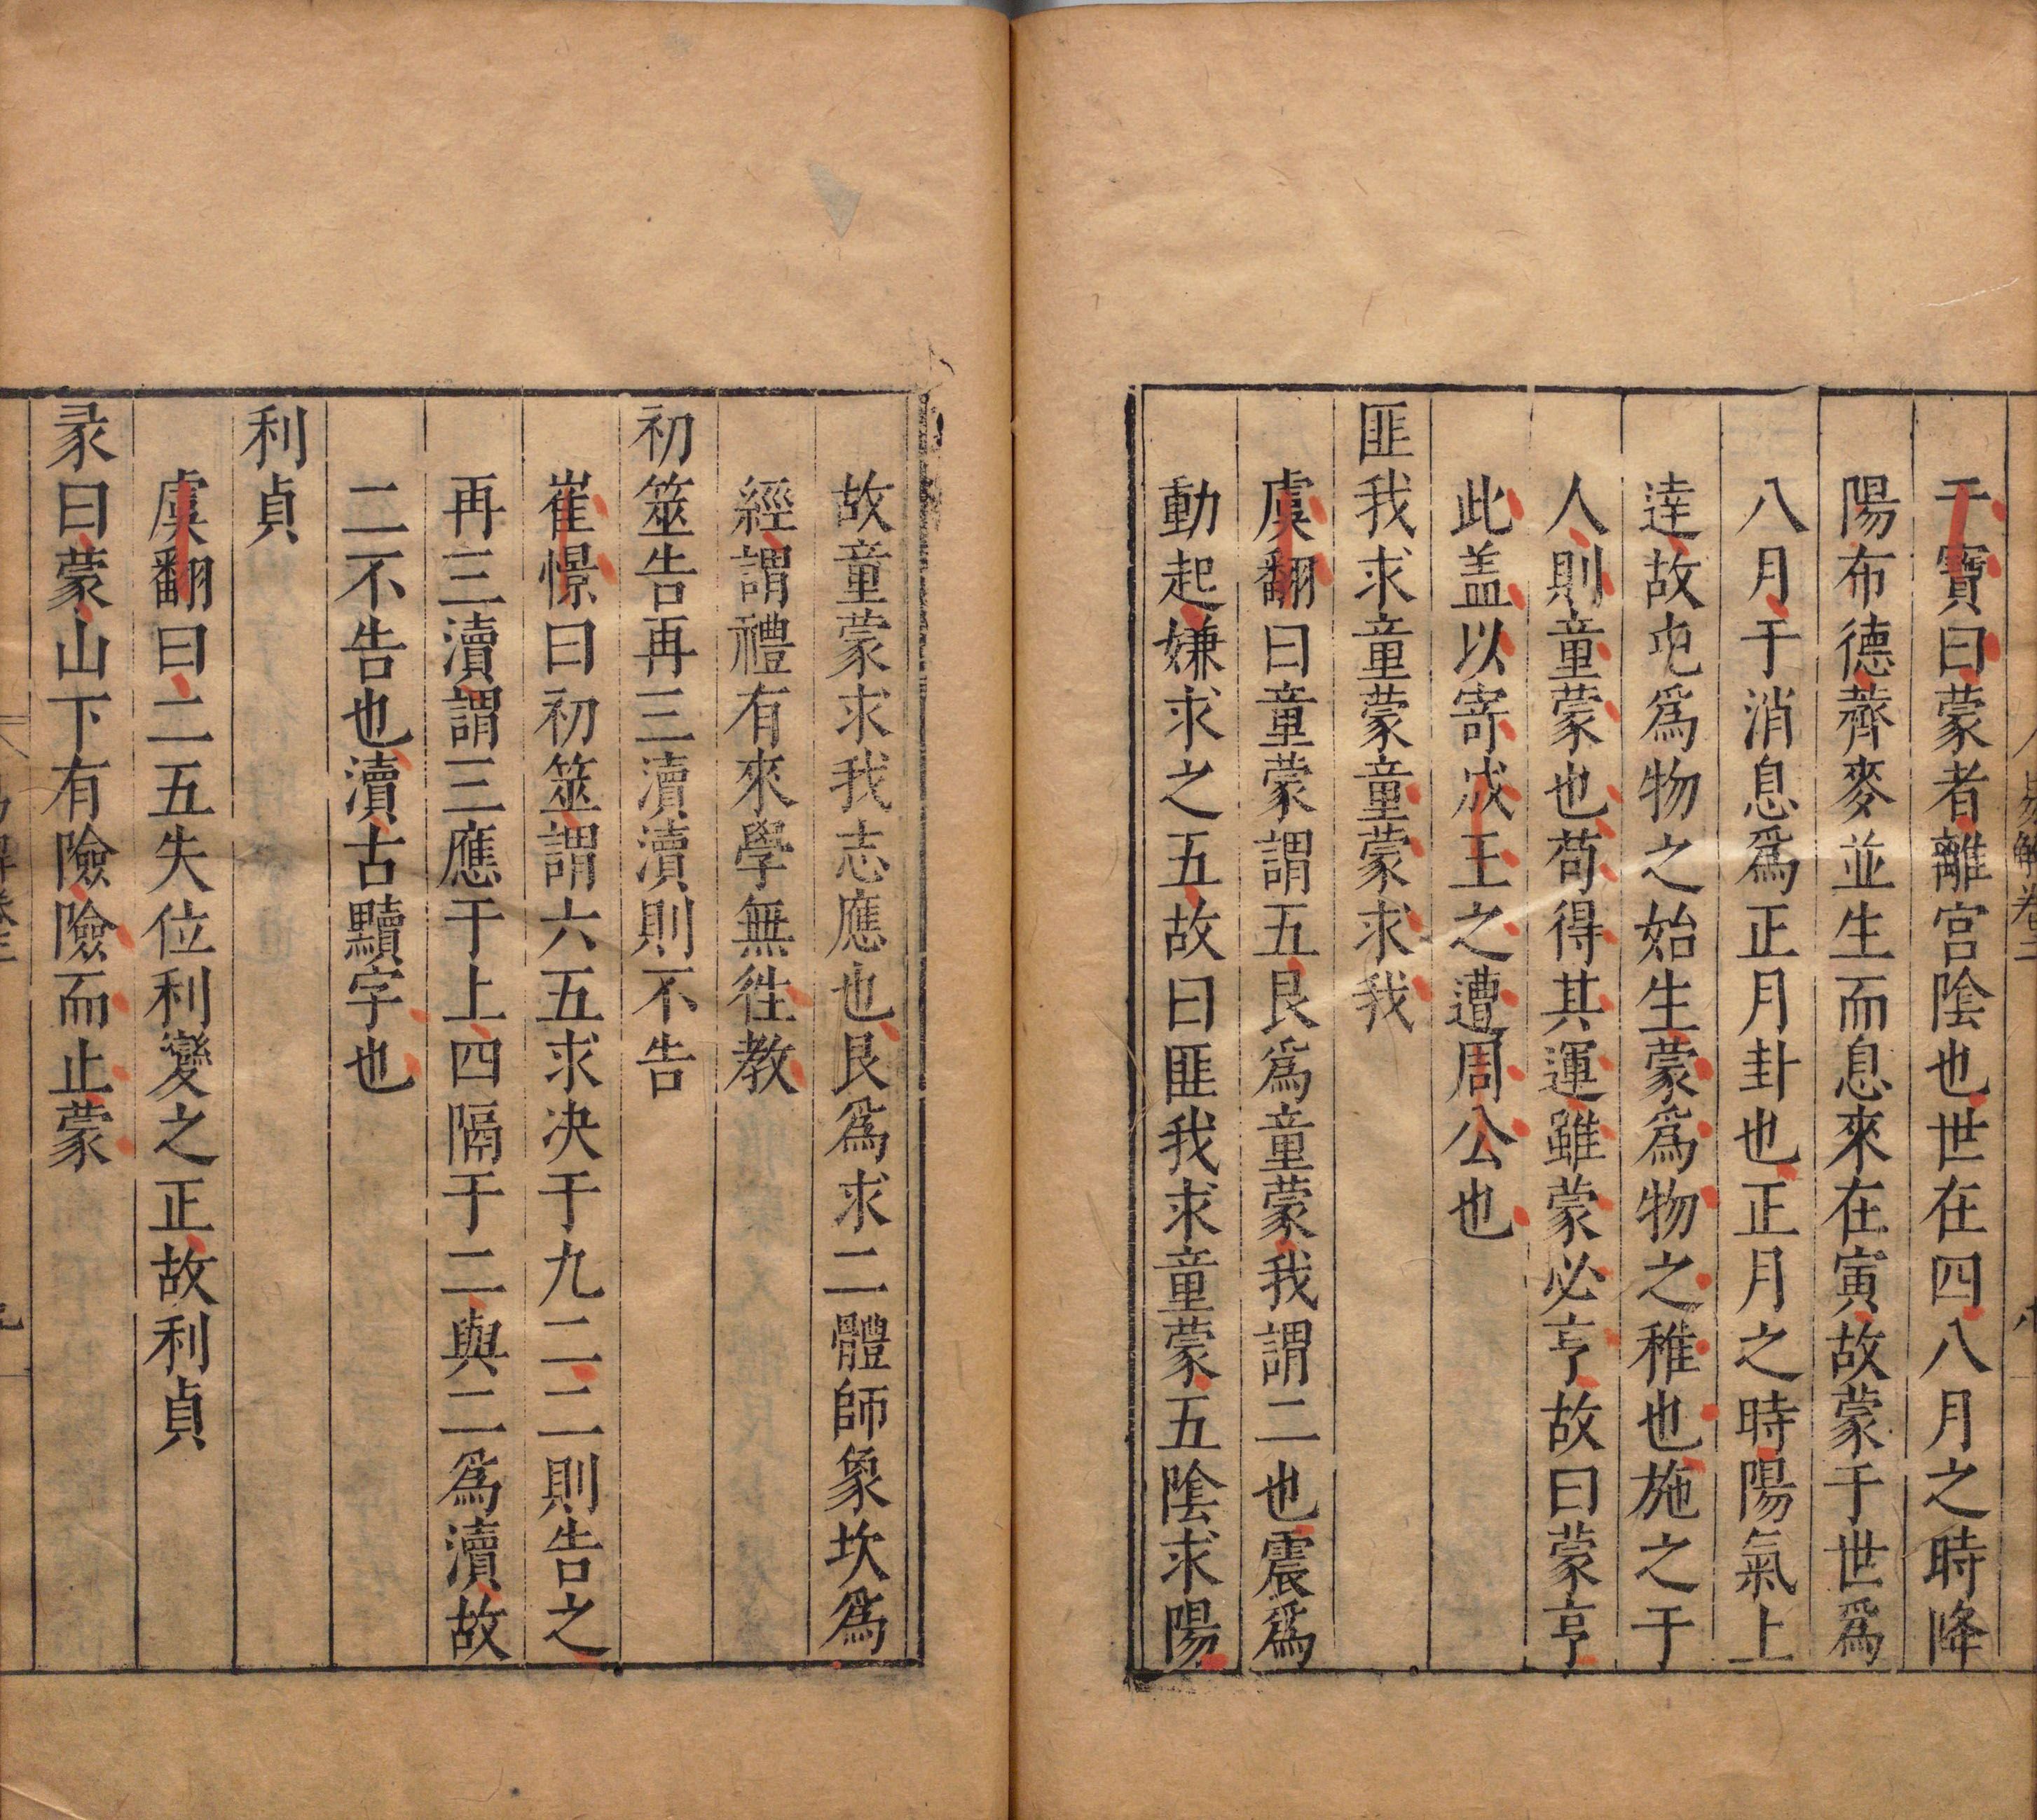 干寶曰蒙者離宮陰也世在四八月之時降
陽布德薺麥並生而息來在寅故蒙于世爲
八月于消息爲正月卦也正月之時陽氣上
達故屯爲物之始生蒙爲物之稚也施之于
人則童蒙也苟得其運雖蒙必亨故曰蒙亨
此盖以寄成王之遭周公也
匪我求童蒙童蒙求我
虞翻曰童蒙謂五艮爲童蒙我謂二也震爲
動起嫌求之五故曰匪我求童蒙五陰求陽
故童蒙求我志應也艮爲求二體師象坎爲
經謂禮有來學無徃教
初筮告再三瀆瀆則不告
崔憬曰初筮謂六五求決于九二二則告之
再三瀆謂三應于上四隔于二與二爲瀆故
二不告也瀆古黷字也
利貞
虞翻曰二五失位利變之正故利貞
彖曰蒙山下有險險而止蒙